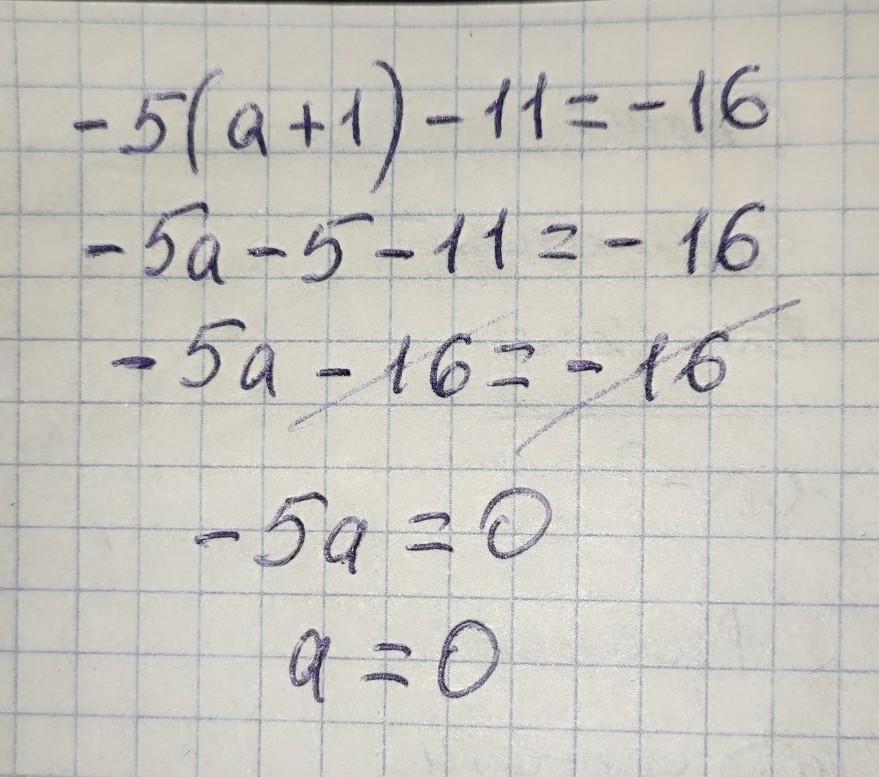 -5(a+1)-11=-16
-5a-5-11=-16
-5a-16=-16
-5a=0
a=0